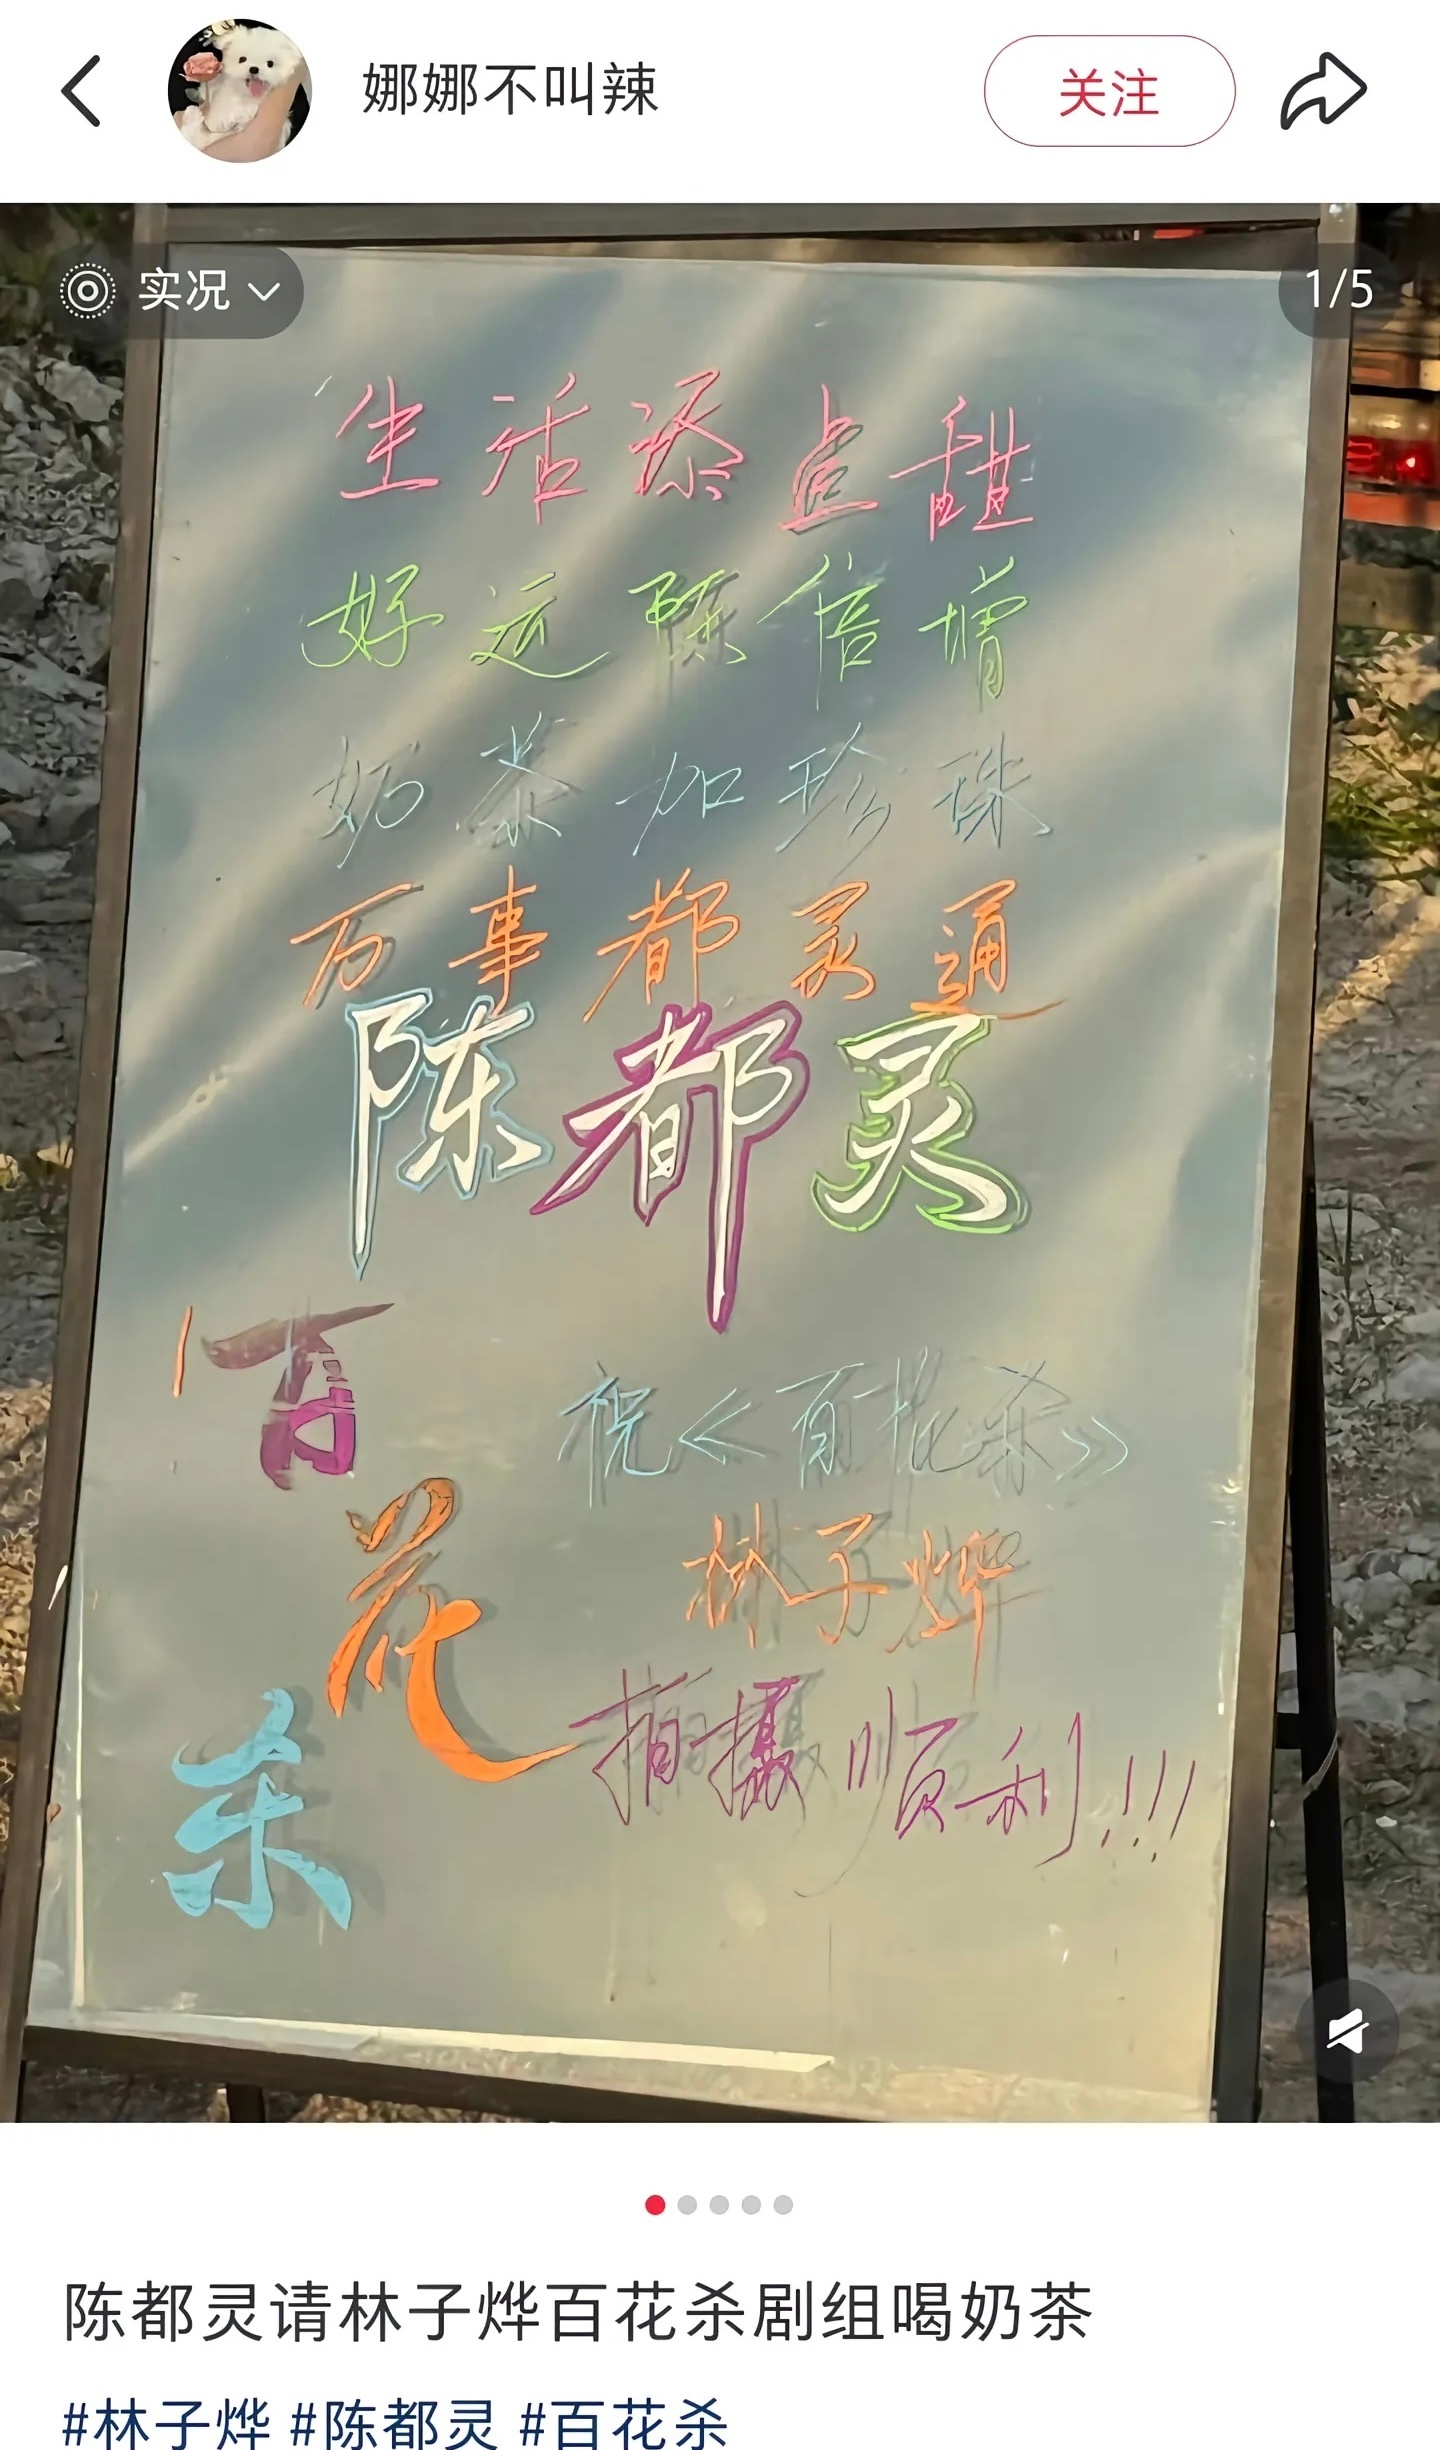 娜娜不叫辣
关注
实况
1/5
生活添点甜
好运陈倍增
奶茶加珍珠
万事都灵通
陈都灵
百花杀
祝《百花杀》
林子烨
拍摄顺利!!!
陈都灵请林子烨百花杀剧组喝奶茶
#林子烨 #陈都灵 #百花杀